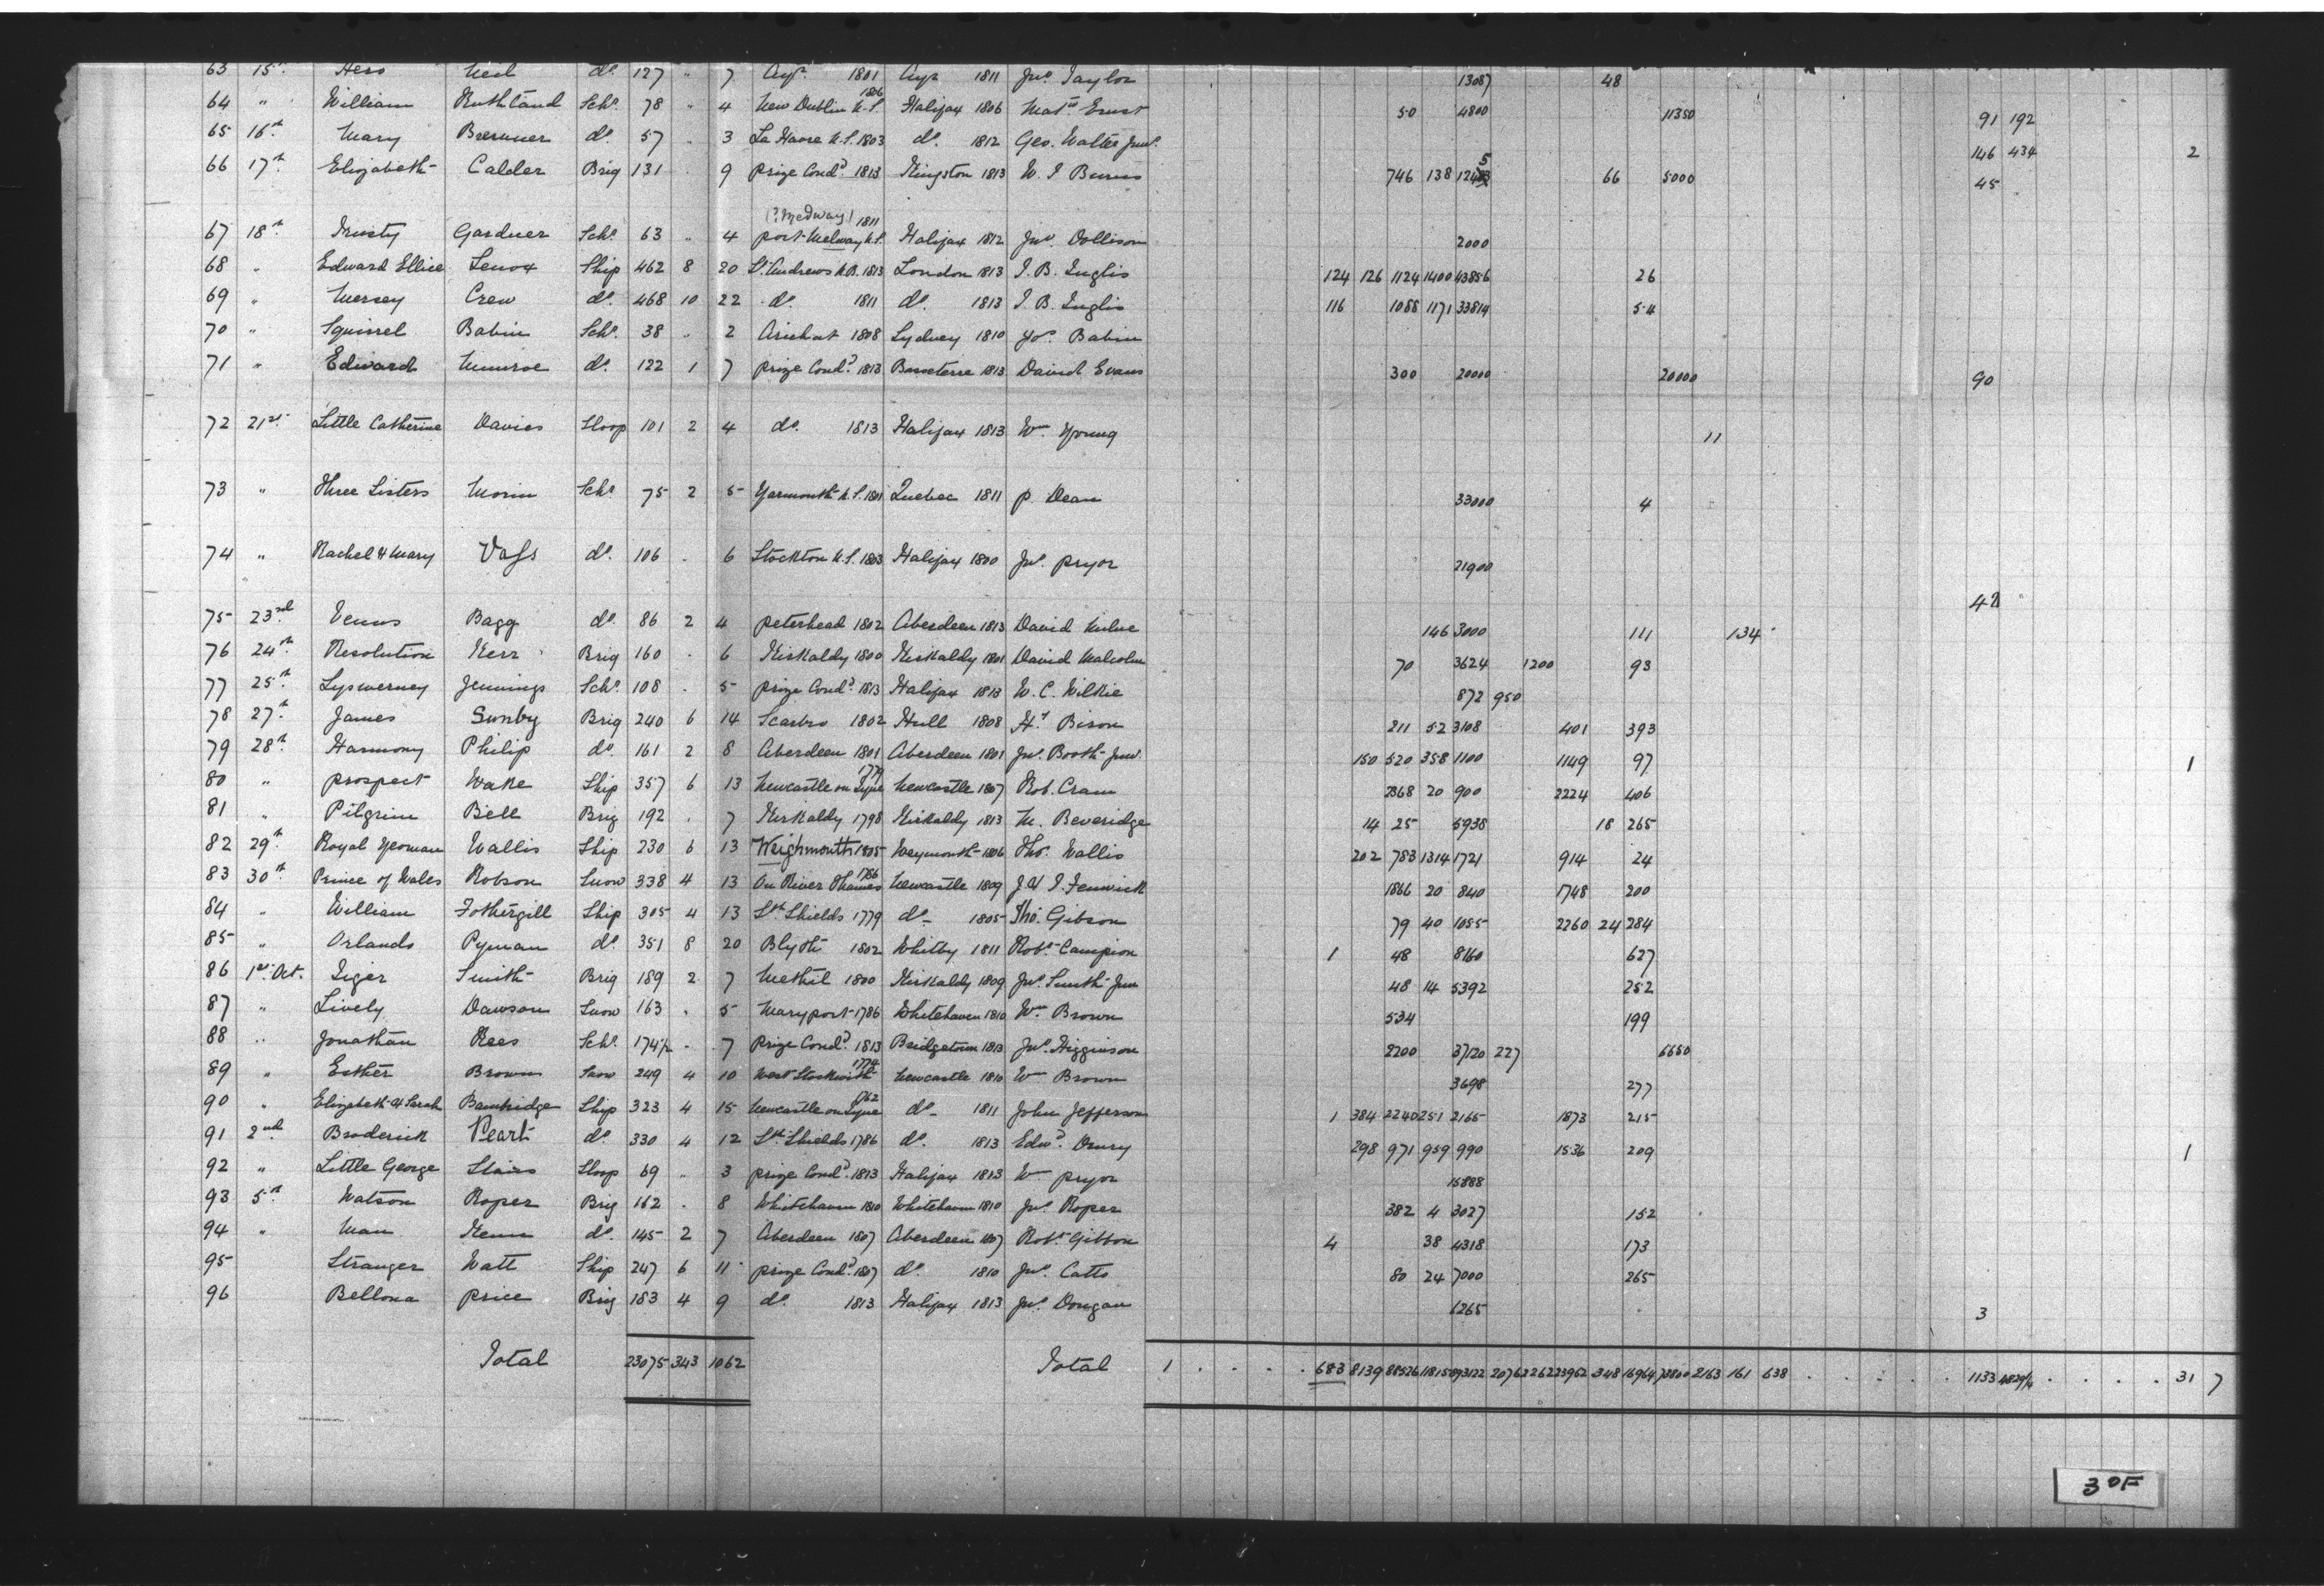 63 15th Hero Neil do. 127 " 7 Ayr. 1801 Ayr 1811 Jno Taylor 13087 48
64 " William Ruthland Schr. 78 " 4 New Dublin N.S. 1806 Halifax 1806 Mat. Ernst 50 4800 11350 91 192
65 16th Mary Brenner do. 57 " 3 La Have N.S. 1803 do. 1812 Geo. Walter Junr. 146 434 2
66 17th Elizabeth Calder Brig 131 9 Prize Cond. 1813 Kingston 1813 W. J Burns 746 138 66 5000 45
(? Medway) 1811
67 18th Trusty Gardner Schr. 63 " 4 Port Melway N.S. Halifax 1812 Jno. Dollison 2000
68 " Edward Ellice Lenox Ship 462 8 20 St. Andrews N.B. 1813 London 1813 J. B. Inglis 124 126 1124 1400 43856 26
69 " Mersey Crew do. 468 10 22 do. 1811 do. 1813 J. B. Inglis 116 1088 1171 33814 54
70 " Squirrel Babin Schr. 38 " 2 Arichat 1808 Sydney 1810 Jos. Babin
71 " Edward Munroe do. 122 1 7 Prize Cond. 1813 Basseterre 1813 David Evans 300 20000 20000 90
72 21st Little Catherine Davies Sloop 101 2 4 do. 1813 Halifax 1813 Wm. Young 11
73 " Three Sisters Morin Schr 75 2 5 Yarmouth N.S. 1801 Quebec 1811 P. Dean 33000 4
74 " Rachel & Mary Vass do. 106 . 6 Stockton N.S. 1803 Halifax 1800 Jno. Pryor 21900
75 23rd Venus Bagg do. 86 2 4 Peterhead 1802 Aberdeen 1813 David Milne 146 3000 111 134 42
76 24th Resolution Kerr Brig 160 . 6 Kirkaldy 1800 Kirkaldy 1801 David Malcolm 70 3624 1200 93
77 25th Lyswerney Jennings Schr. 108 . 5 Prize Cond. 1813 Halifax 1813 W. C. Wilkie 872 950
78 27th James Sunby Brig 240 6 14 Scarbro 1802 Hull 1808 Hy Bison 211 52 3108 401 393
79 28th Harmony Philip do. 161 2 8 Aberdeen 1801 Aberdeen 1801 Jno. Booth Junr. 150 520 358 1100 1149 97 1
80 " Prospect Wake Ship 357 6 13 Newcastle on Tyne 1779 Newcastle 1807 Rob. Cram 2368 20 900 2224 406
81 " Pilgrim Bell Brig 192 . 7 Kirkaldy 1798 Kirkaldy 1813 M. Beveridge 14 25 5938 18 265
82 29th Royal Yeoman Wallis Ship 230 6 13 Weighmouth 1805 Weymouth 1806 Thos. Wallis 202 783 1314 1721 914 24
83 30th Prince of Wales Robson Snow 338 4 13 On River Thames 1786 Newcastle 1809 J & J. Fenwick 1866 20 840 1748 200
84 " William Fothergill Ship 305 4 13 Sth Shields 1779 do. 1805 Tho. Gibson 79 40 1055 2260 24 284
85 " Orlando Pyman do. 351 8 20 Blyth 1802 Whitby 1811 Robt Campion 1 48 8160 627
86 1st Oct. Tiger Smith Brig 189 2 7 Methil 1800 Kirkaldy 1809 Jno. Smith Jun 48 14 5392 252
87 " Lively Dawson Snow 163 . 5 Maryport 1786 Whitehaven 1810 Wm Brown 534 199
88 " Jonathan Rees Schr. 174½ . 7 Prize Cond. 1813 Bridgetown 1813 Jno. Higginson 2200 3720 227 6650
89 " Esther Brown Snow 249 4 10 West Stockwith 1774 Newcastle 1810 Wm Brown 3698 277
90 " Elizabeth & Sarah Bambridge Ship 323 4 15 Newcastle on Tyne 1762 do. 1811 John Jefferson 1 384 2240 251 2165 1873 215
91 2nd Broderick Peart do. 330 4 12 Sth Shields 1786 do. 1813 Edwd. Drury 298 971 959 990 1536 209 1
92 " Little George Stairs Sloop 69 " 3 Prize Cond. 1813 Halifax 1813 Wm Pryor 15888
93 5th Watson Roper Brig 162 . 8 Whitehaven 1810 Whitehaven 1810 Jno. Roper 382 4 3027 152
94 " Man Kenn do. 145 2 7 Aberdeen 1807 Aberdeen 1807 Robt Gibbon 4 38 4318 173
95 Stranger Watt Ship 247 6 11 Prize Cond. 1807 do. 1810 Jno. Catto 80 24 7000 265
96 Bellona Price Brig 183 4 9 do. 1813 Halifax 1813 Jno. Dougan 6265 3
Total 23075 343 1062 Total 1 683 8139 348 16964 2163 161 638 1133 31 7
30F